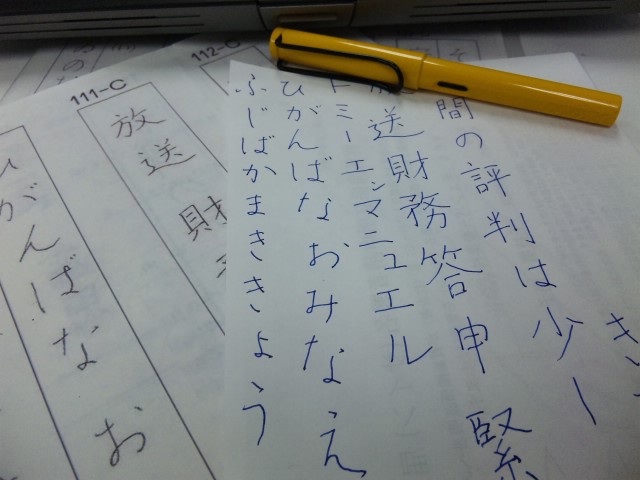 き
間の評判は少
送財務答申 緊
トミーエンマニュエル
ひがんばなおみなえ
ふじばかまききょう
112-C
111-C
放送 財
がんばな お